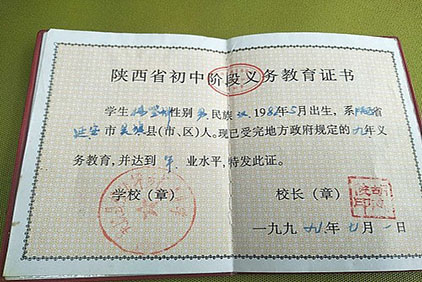 陕西省初中阶段义务教育证书
学生 性别 民族 汉 198 年5月出生，系陕西省
延安市 县（市、区）人。现已受完地方政府规定的九年义
务教育，并达到 毕 业水平，特发此证。
学校（章） 校长（章）
一九九 九 年 七 月 一 日